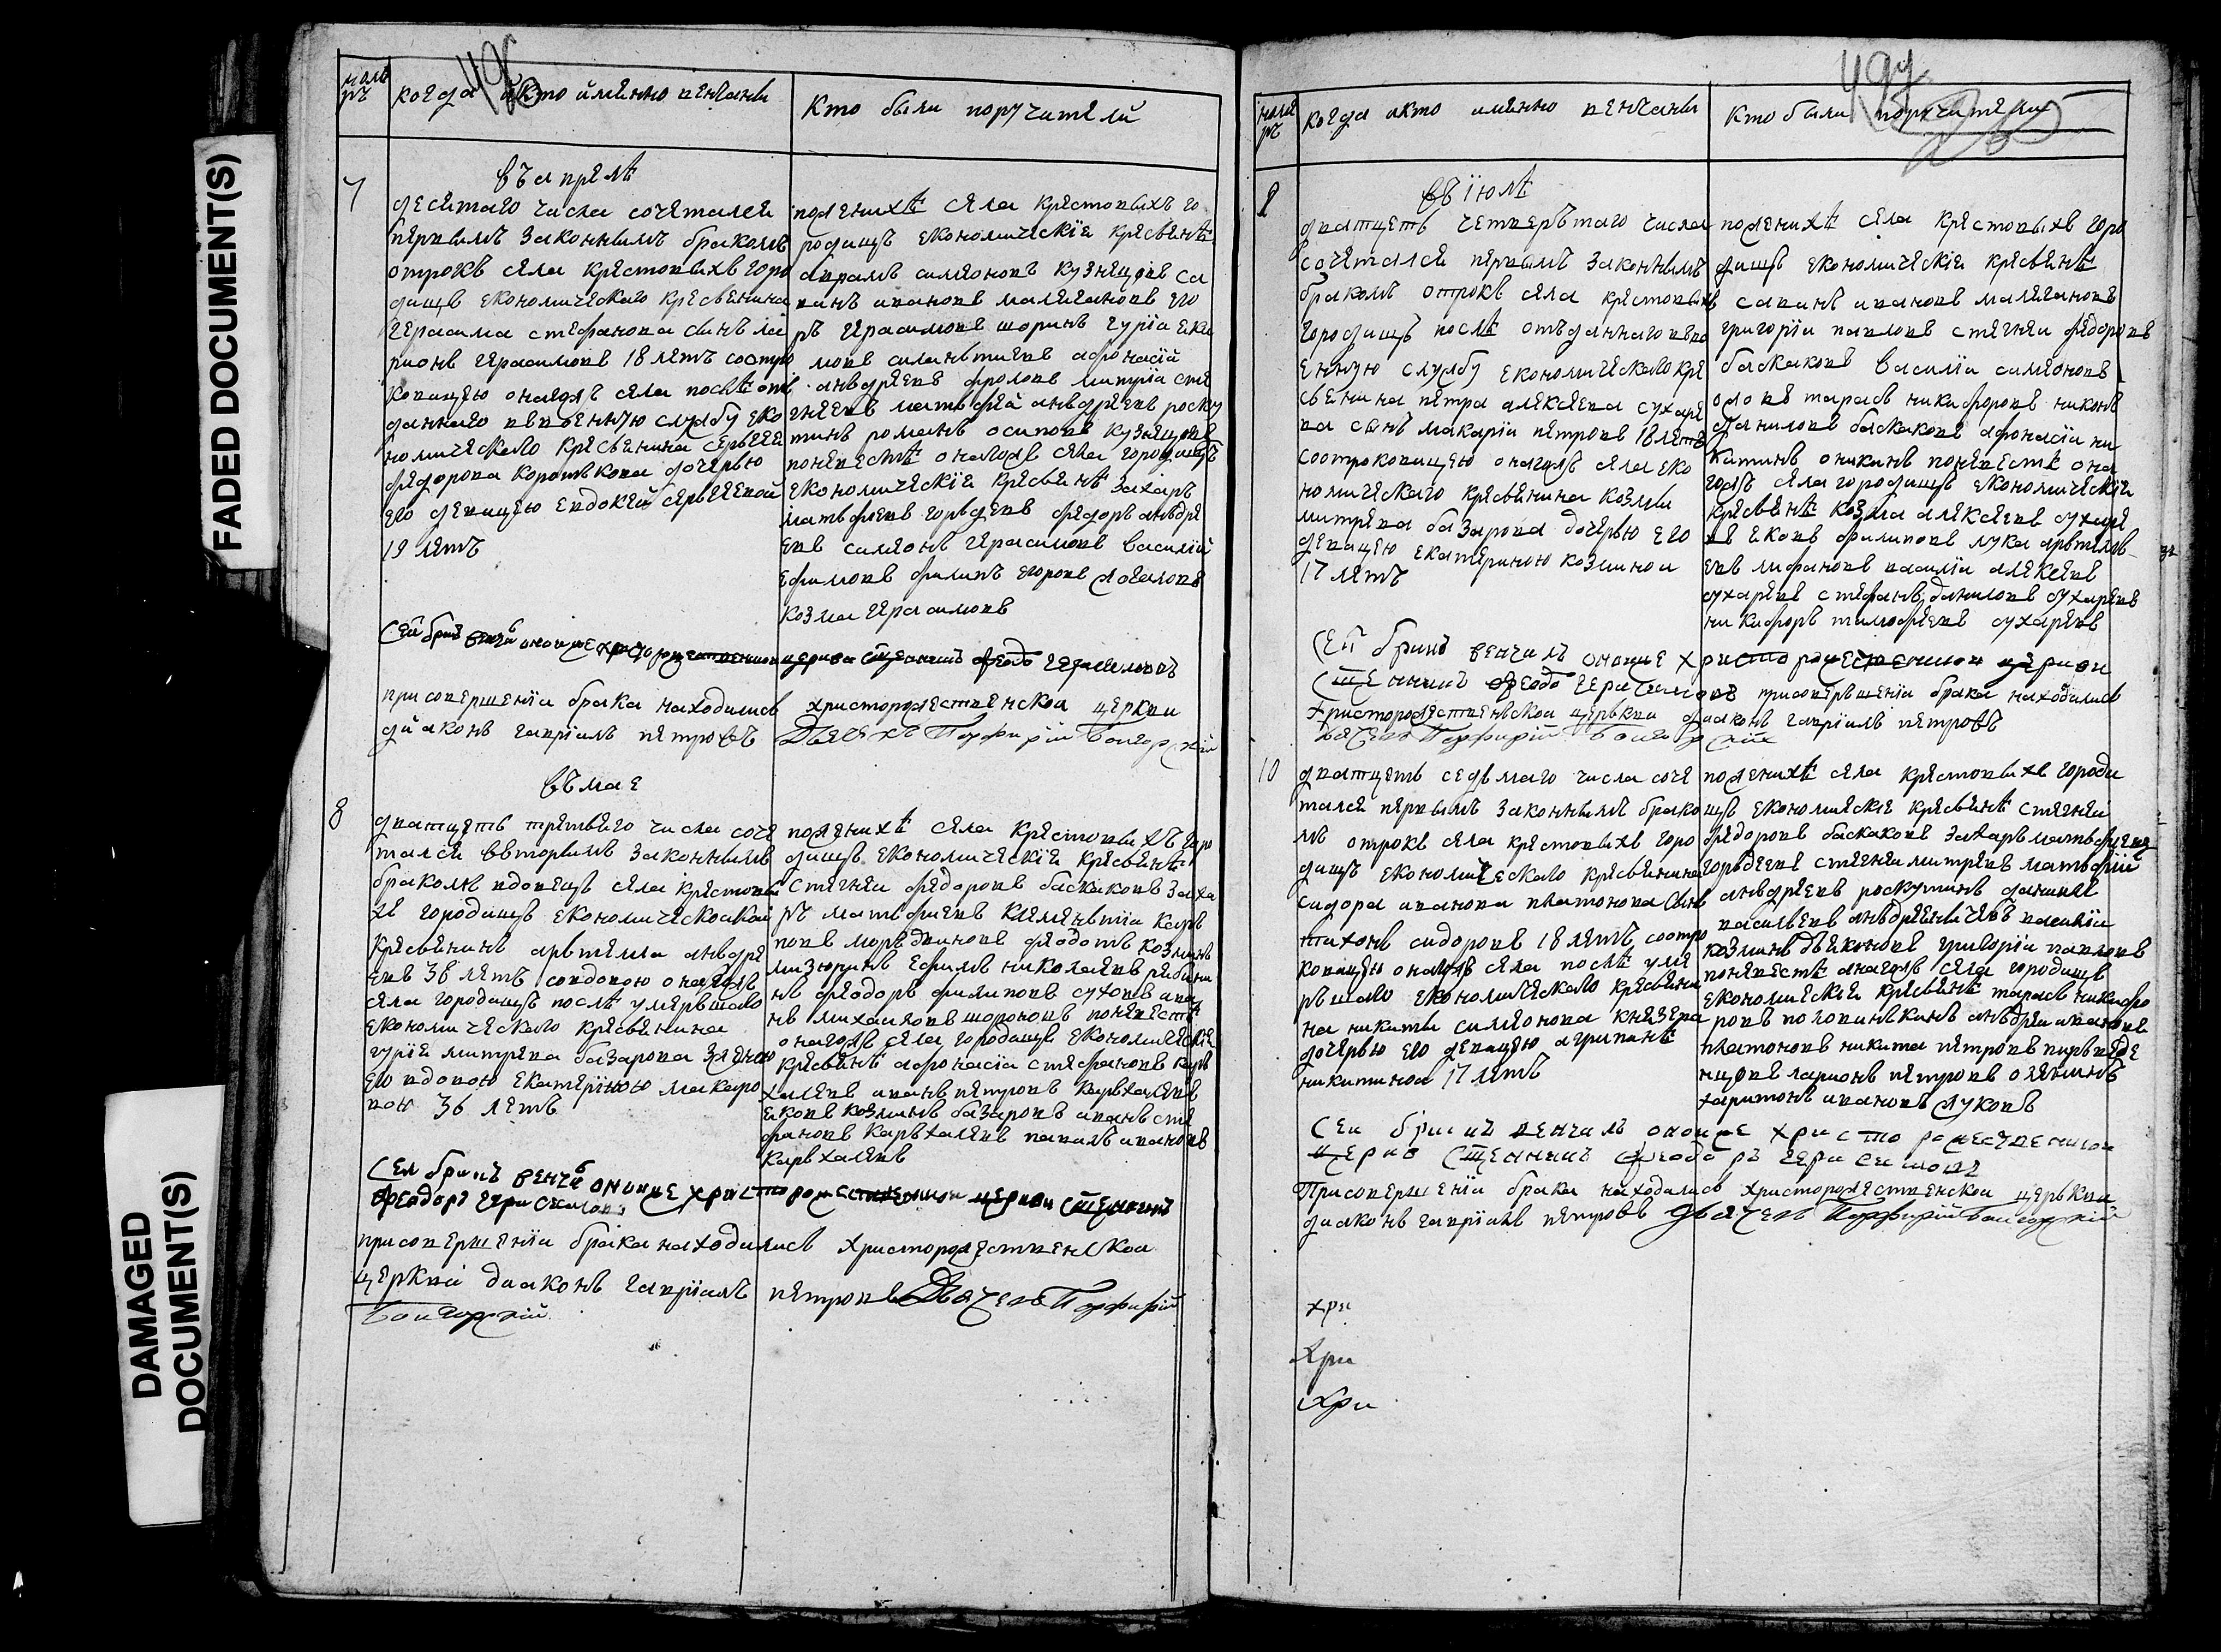 FADED DOCUMENT(S)
DAMAGED
DOCUMENT(S)
номе
ръ
когда и кто именно венчаны
Кто были поручители
въ апреле
7
десятаго числа сочетался
первымъ законнымъ бракомъ
отрокъ села крестовыхъ горо
дищъ економическаго кресьянина
герасима стефанова сынъ ла
рионъ герасимовъ 18 летъ соотро
ковицею онагожъ села после отъ
даннаго ввоенную служъбу еко
номическаго кресьянина сергея
федорова коротъкова дочерью
его девицею евдокеей сергеевой
19 летъ
пожених села крестовыхъ го
родищъ економическия кресьяне
аврамъ симеоновъ кузнецовъ са
ванъ ивановъ малегановъ его
ръ герасимовъ шоринъ гурiа еки
мовъ силаньтиевъ афонасiй
анъдреевъ фроловъ митрiа сте
гнеевъ матьфей анъдреевъ роску
тинъ романъ осиповъ кузнецовъ
поневесте онагожъ села городищъ
економическiе кресьяне захаръ
матьфеевъ горъдеевъ федоръ анъдре
евъ симеонъ герасимовъ василiй
ефимовъ филипъ егоровъ
козма герасимовъ
Сей бракъ венчалъ оноиже христорожественской церкви сщенникъ феодоръ герасимовъ
присовершенiи брака находились христорожественской церкви
дiаконъ гаврiилъ петровъ Дьячекъ Порфирiй
въ мае
8
дватцеть третьяго числа соче
тался въвторымъ законнымъ
бракомъ вдовецъ села крестовы
хъ городищъ економическои
кресьянинъ арътемiи анъдре
евъ 38 летъ совдовою онагожъ
села городищъ после умеръшаго
економическаго кресьянина
гурiя митрева базарова женою
его вдовою екатериною макаро
вой 36 летъ
пожених села крестовыхъ горо
дищъ економическiя кресьяне
стегнеи федоровъ баскаковъ заха
ръ матьфеевъ клеменьтiи каръ
повъ моръдвиновъ феодотъ козминъ
мизюринъ ефимъ николаевъ рябини
нъ феодоръ филиповъ суховъ ива
нъ михаиловъ шороновъ поневесте
онагожъ села городищъ економическiя
кресьяне афонасiи стефановъ каръ
халевъ иванъ петровъ каръхалевъ
яковъ козминъ базаровъ иванъ сте
фановъ каръхалевъ павалъ ивановъ
каръхалевъ
Сеи бракъ венчалъ оноиже христорожественской церкви сщенникъ
феодоръ герасимовъ
присовершенiи брака находились христорожественъской
церкви диаконъ гаврiилъ петровъ Дьячекъ Порфирiй
номе
ръ
когда икто именно венчаны
Кто были поручители
въ iюле
дватцеть четверътаго числа
сочетался первымъ законнымъ
бракомъ отрокъ села крестовыхъ
городищъ после отъданнаго въво
енную служъбу економическаго кре
сьянина петра алексеева сухаре
ва сынъ макарiи петровъ 18 летъ
соотроковицею онагожъ села еко
номическаго кресьянина козмы
митрева базарова дочерью его
девицею екатериною козминои
17 летъ
пожених села крестовыхъ горо
дищъ економическiи кресьяне
саванъ ивановъ малегановъ
григорiи павловъ стегнеи федоровъ
баскаковъ василiи симеоновъ
тарасъ никифоровъ никонъ
даниловъ баскаковъ афонасiи ни
китинъ оникинъ поневесте она
гожъ села городищъ економическiи
кресьяне козма алексеевъ сухаре
въ яковъ филиповъ лука арътемъ
евъ лифановъ василiи алексеевъ
сухаревъ стефанъ даниловъ сухаревъ
никифоръ тимофеевъ сухаревъ
Сеи бракъ венчалъ оноиже христорожественской церкви
сщенникъ феодоръ герасимовъ присоверъшенiи брака находились
христорожественъской церькви диаконъ гаврiилъ петровъ
Дьячекъ Порфирiй
10
дватцеть седьмаго числа соче
тался первымъ законнымъ брако
мъ отрокъ села крестовыхъ горо
дищъ економическаго кресьянина
сидора иванова платонова сынъ
тихонъ сидоровъ 18 летъ соотро
ковицею онагожъ села после уме
ръшаго економическаго кресьяни
на никиты симеонова князева
дочерью его девицею агрипиною
никитинои 17 летъ
пожених села крестовыхъ городи
щъ економическiе кресьяне стегнеи
федоровъ баскаковъ захаръ матьфеевъ
горъдеевъ стегнеи митревъ матьфiй
анъдреевъ роскутинъ данила
васильевъ анъдреяничевъ василiи
козминъ дьяконовъ григорiи павловъ
поневесте онагожъ села городищъ
економическiи кресьяне тарасъ никифо
ровъ половинъкинъ анъдреи ивановъ
платоновъ никита петровъ перъведе
нцовъ ларионъ петровъ
харитонъ ивановъ луковъ
Сеи бракъ венчалъ оноиже христорожественской
церкви сщенникъ феодоръ герасимовъ
Присовершенiи брака находились христорожественской церькви
диаконъ гаврiилъ петровъ Дьячекъ Порфирiй
хри
хри
хри